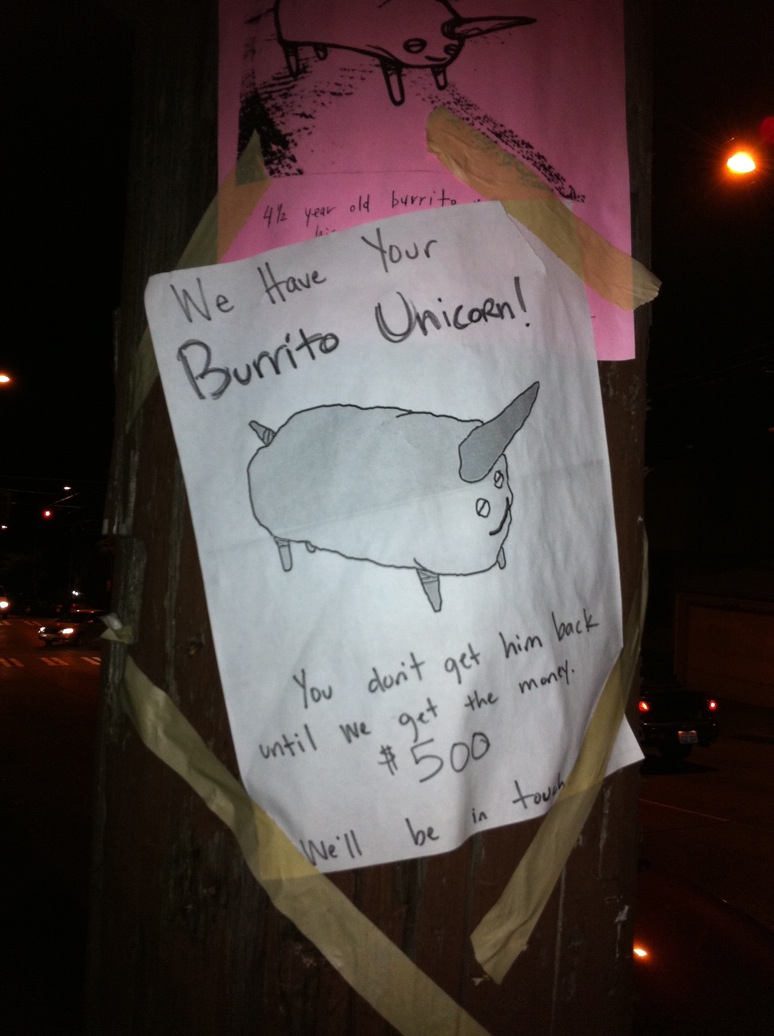 4½ year old burrito
We Have Your
Burrito Unicorn!
You don't get him back
until we get the money.
$500
We'll be in touch